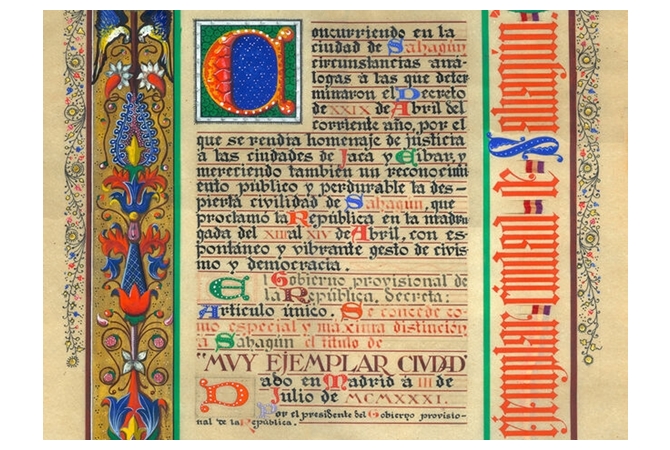 Concurriendo en la
ciudad de Sahagún
circunstancias aná-
logas a las que deter
minaron el Decreto
de XXIX de Abril del
corriente año, por el
que se rendia homenaje de justicia
a las ciudades de Jaca y Eibar, y
mereciendo también un reconocimi
ento público y perdurable la des-
pierta civilidad de Sahagún, que
proclamó la República en la madru
gada del XIII al XIV de Abril, con es-
pontáneo y vibrante gesto de civis
mo y democracia.
El Gobierno provisional de
la República, decreta:
Artículo único. Se concede co
mo especial y maxima distinción
a Sahagún el titulo de
"MUY EJEMPLAR CIUDAD"
Dado en Madrid a III de
Julio de MCMXXXI.
Por el presidente del Gobierno provisio-
nal de la República.
Ejemplar ciudad de Sahagún